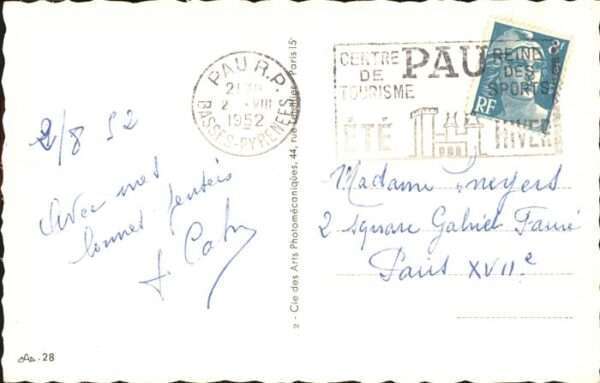 2/8 52
Avec mes
bonnes pensées
PAU R.P.
2 - VIII
1952
BASSES-PYRENEES
CENTRE
DE
TOURISME
PAU
REINE
DES
SPORTS
ÉTÉ
HIVER
8f
RF
Madame
2 square Gabriel Fauré
Paris XVIIe
2 - Cie des Arts Photomécaniques, 44, rue Paris 15e
28